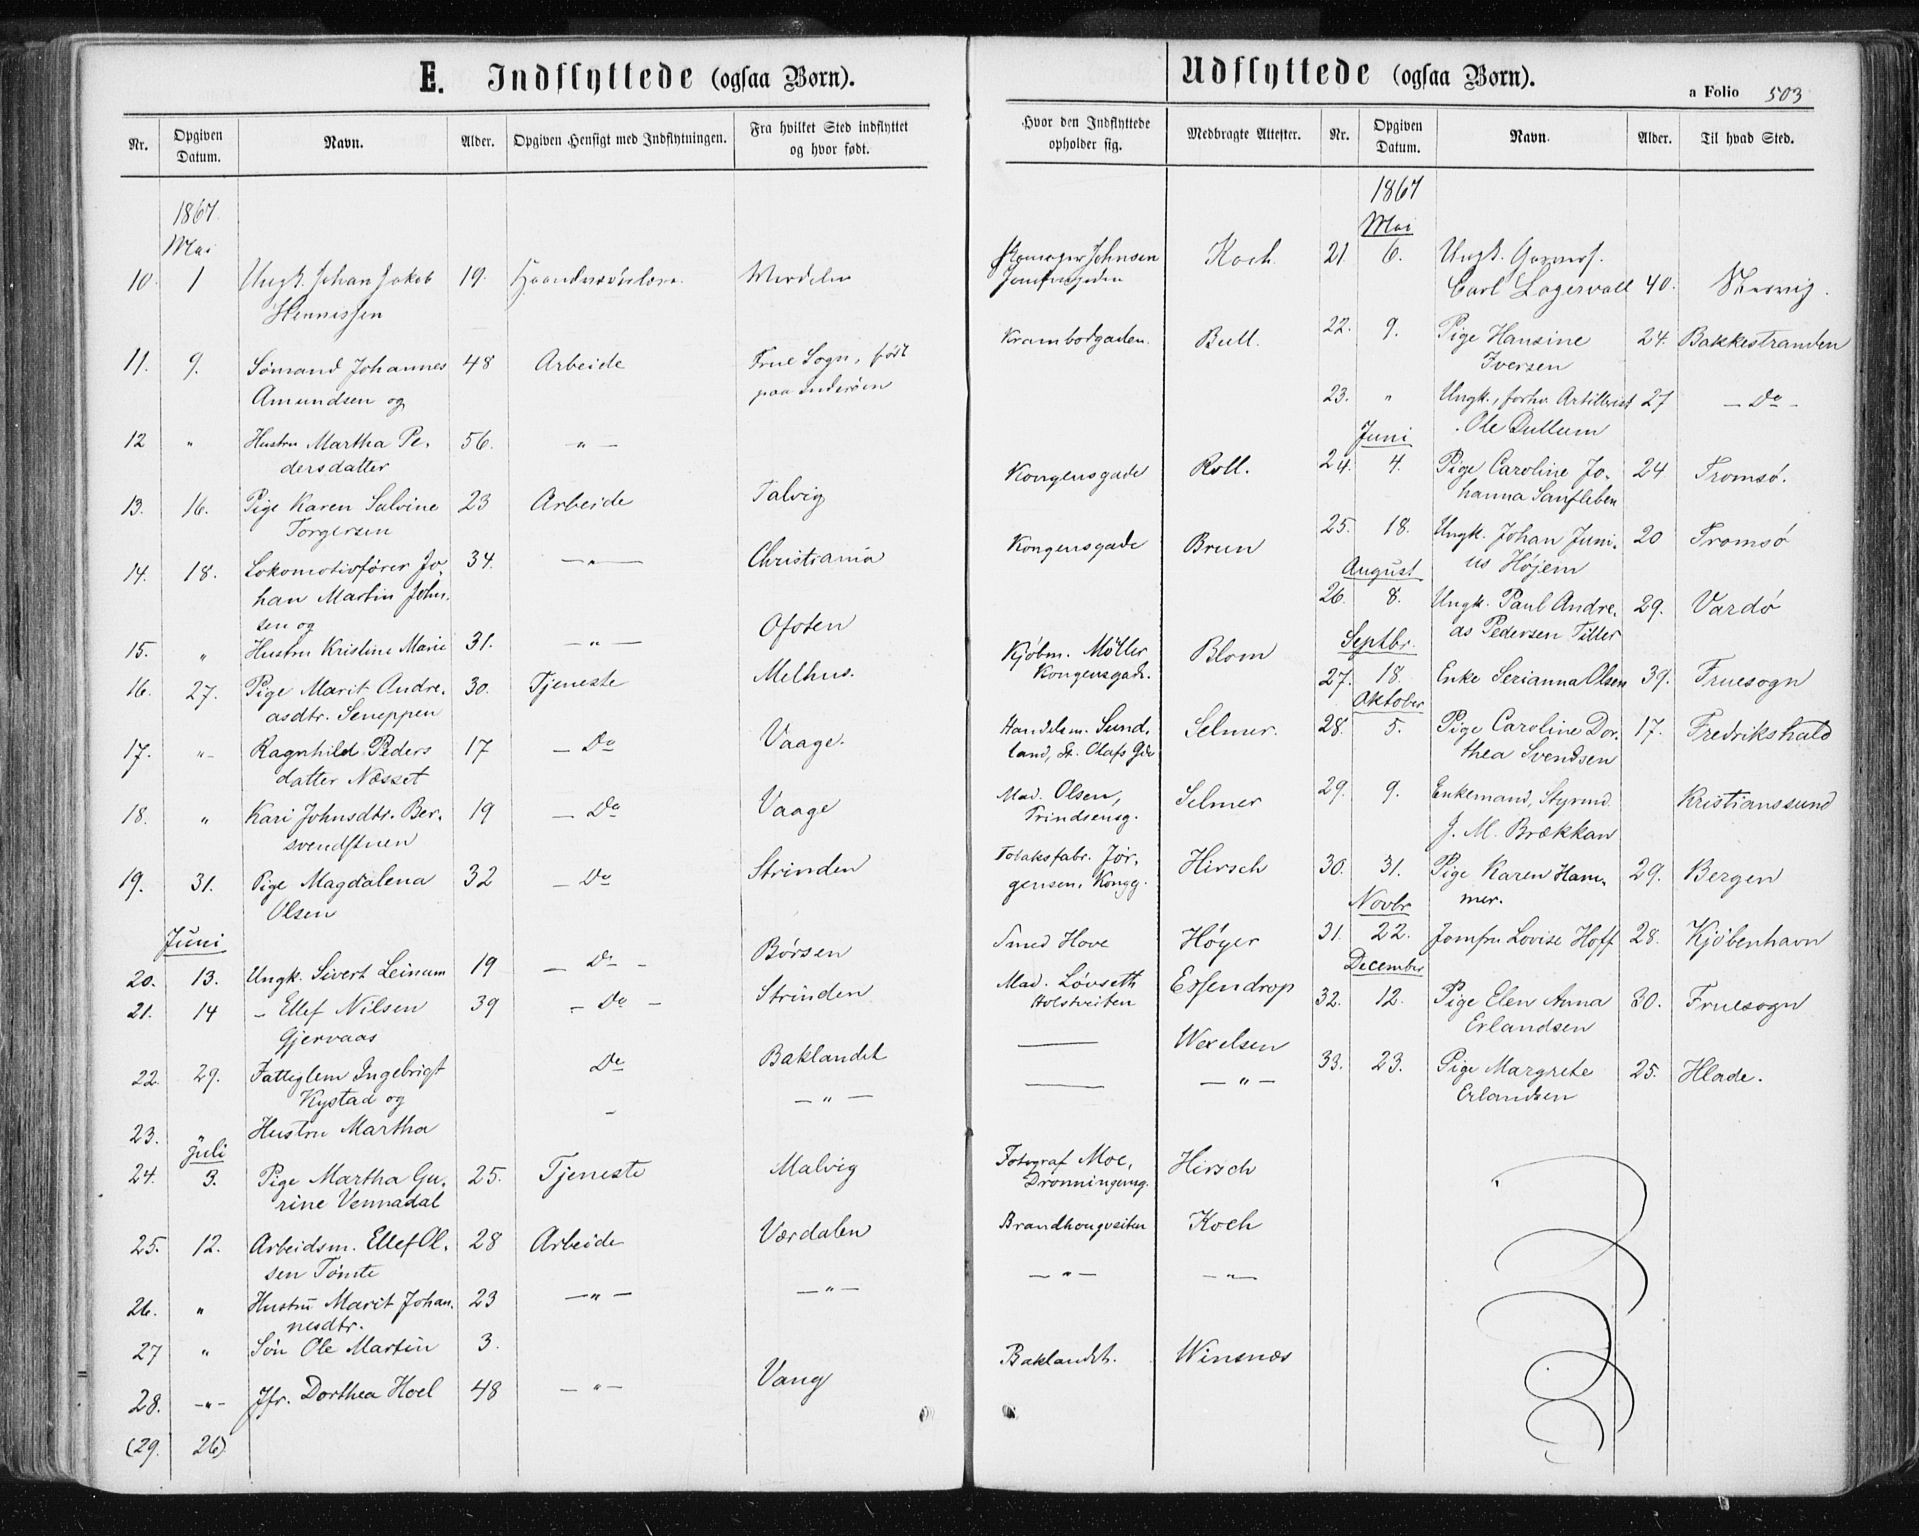 E. Indflyttede (ogsaa Børn).
Nr. Opgiven Datum. Navn. Alder. Opgiven Hensigt med Indflytningen. Fra hvilket Sted indflyttet og hvor født.
1867.
Mai
10. 1 Ungk. Johan Jakob 19.
11. 9. Sømand Johannes 48 Arbeide Frue Sogn, født
Amundsen og paa Inderøen
12 " Hustru Martha Pe- 56. — " —
dersdatter
13. 16. Pige Karen Salvine 23 Arbeide Talvig
Torgersen
14. 18. Lokomotivfører Jo- 34. — " — Christiania
han Martin John-
sen og
15. " Hustru Kristine Marie 31. — " — Ofoten
16. 27. Pige Marit Andre- 30. Tjeneste Melhus.
asdtr. Seneppen
17. " Ragnhild Peders 17 — Do Vaage.
datter Næsset
18. " Kari Johnsdtr. Ber- 19 — Do Vaage
svendstuen
19. 31. Pige Magdalena 32 — Do Strinden
Olsen
Juni
20. 13. Ungk. Sivert Leinum 19 — Do - Børsen
21. 14 — Ellef Nilsen 39 - Do - Strinden
Gjervaas
22. 29. Fattiglem Ingebrigt Do Baklandet
Kystad og — " —
23. " Hustru Martha -
Juli
24. 3. Pige Martha Gu- 25. Tjeneste Malvig
rine Vennadal
25. 12. Arbeidsm. Ellef Ol- 28 Arbeide Værdalen
sen Tømte
26. " Hustru Marit Johan- 23 — " — — " —
nesdtr.
27 " Søn Ole Martin 3.
28. - " - Jfr. Dorthea Hoel 48 — " — Vang
(29. 26).
Udflyttede (ogsaa Børn).
a Folio 503
Hvor den Indflyttede opholder sig. Medbragte Attester. Nr. Opgiven Datum. Navn. Alder. Til hvad Sted.
1867
Mai
Johnsen Koch. 21. 6. Ungk.
Carl Lagervall 40.
Krambodgaden. Bull. 22. 9. Pige Hansine 24. Bakkestranden
Iversen
23. " Ungk., forhv. Artillerist 27 — Do —
Ole Dullum
Juni
Kongensgade Roll. 24. 4. Pige Caroline Jo- 24. Tromsø.
hanna Sanfleben
Kongensgade Brun 25. 18. Ungk. Johan Juni- 20 Tromsø
us Højem
August
26. 8. Ungk. Paul Andre- 29. Vardø
as Pedersen Tiller
Septbr.
Kjøbm. Møller Blom 27. 18. Enke Serianna Olsen 39. Fruesogn
Kongensgade.
Oktober
Handelsm. Sund- Selmer. 28. 5. Pige Caroline Dor- 17. Fredrikshald
land, St. Olafs Gde thea Svendsen
Mad. Olsen, Selmer 29. 9. Enkemand, Styrmd. Kristianssund
Prindsensg. J. M. Brækkan
Tobaksfabr. Jør- Hirsch 30. 31. Pige Karen Ham- 29. Bergen
gensen, Kongg. mer.
Novbr
Smed Hove Høyer 31. 22. Jomfru Lovise Hoff 28. Kjøbenhavn
December
Mad. Løvseth Essendrop 32. 12. Pige Elen Anna 30. Fruesogn
Holstveiten Erlandsen
—— Wexelsen
—— — " — 33. 23. Pige Margrete 25. Hlade.
Erlandsen
Fotograf Moe, Hirsch
Dronningensg.
Brandhougveiten Koch
— " — — " —
Baklandet. Winsnæs